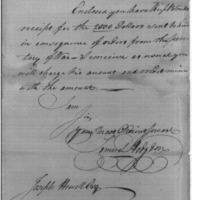 Enclosed you have
receipt for the 2000 Dollars sent to him
in consequence of orders from the Secre
tary of War. I conceive as usual you
will charge this amount and credit mine
with the amount.
I am
Sir
Your most Obedient Servant
Samuel Hodgdon
Joseph Howell Esq